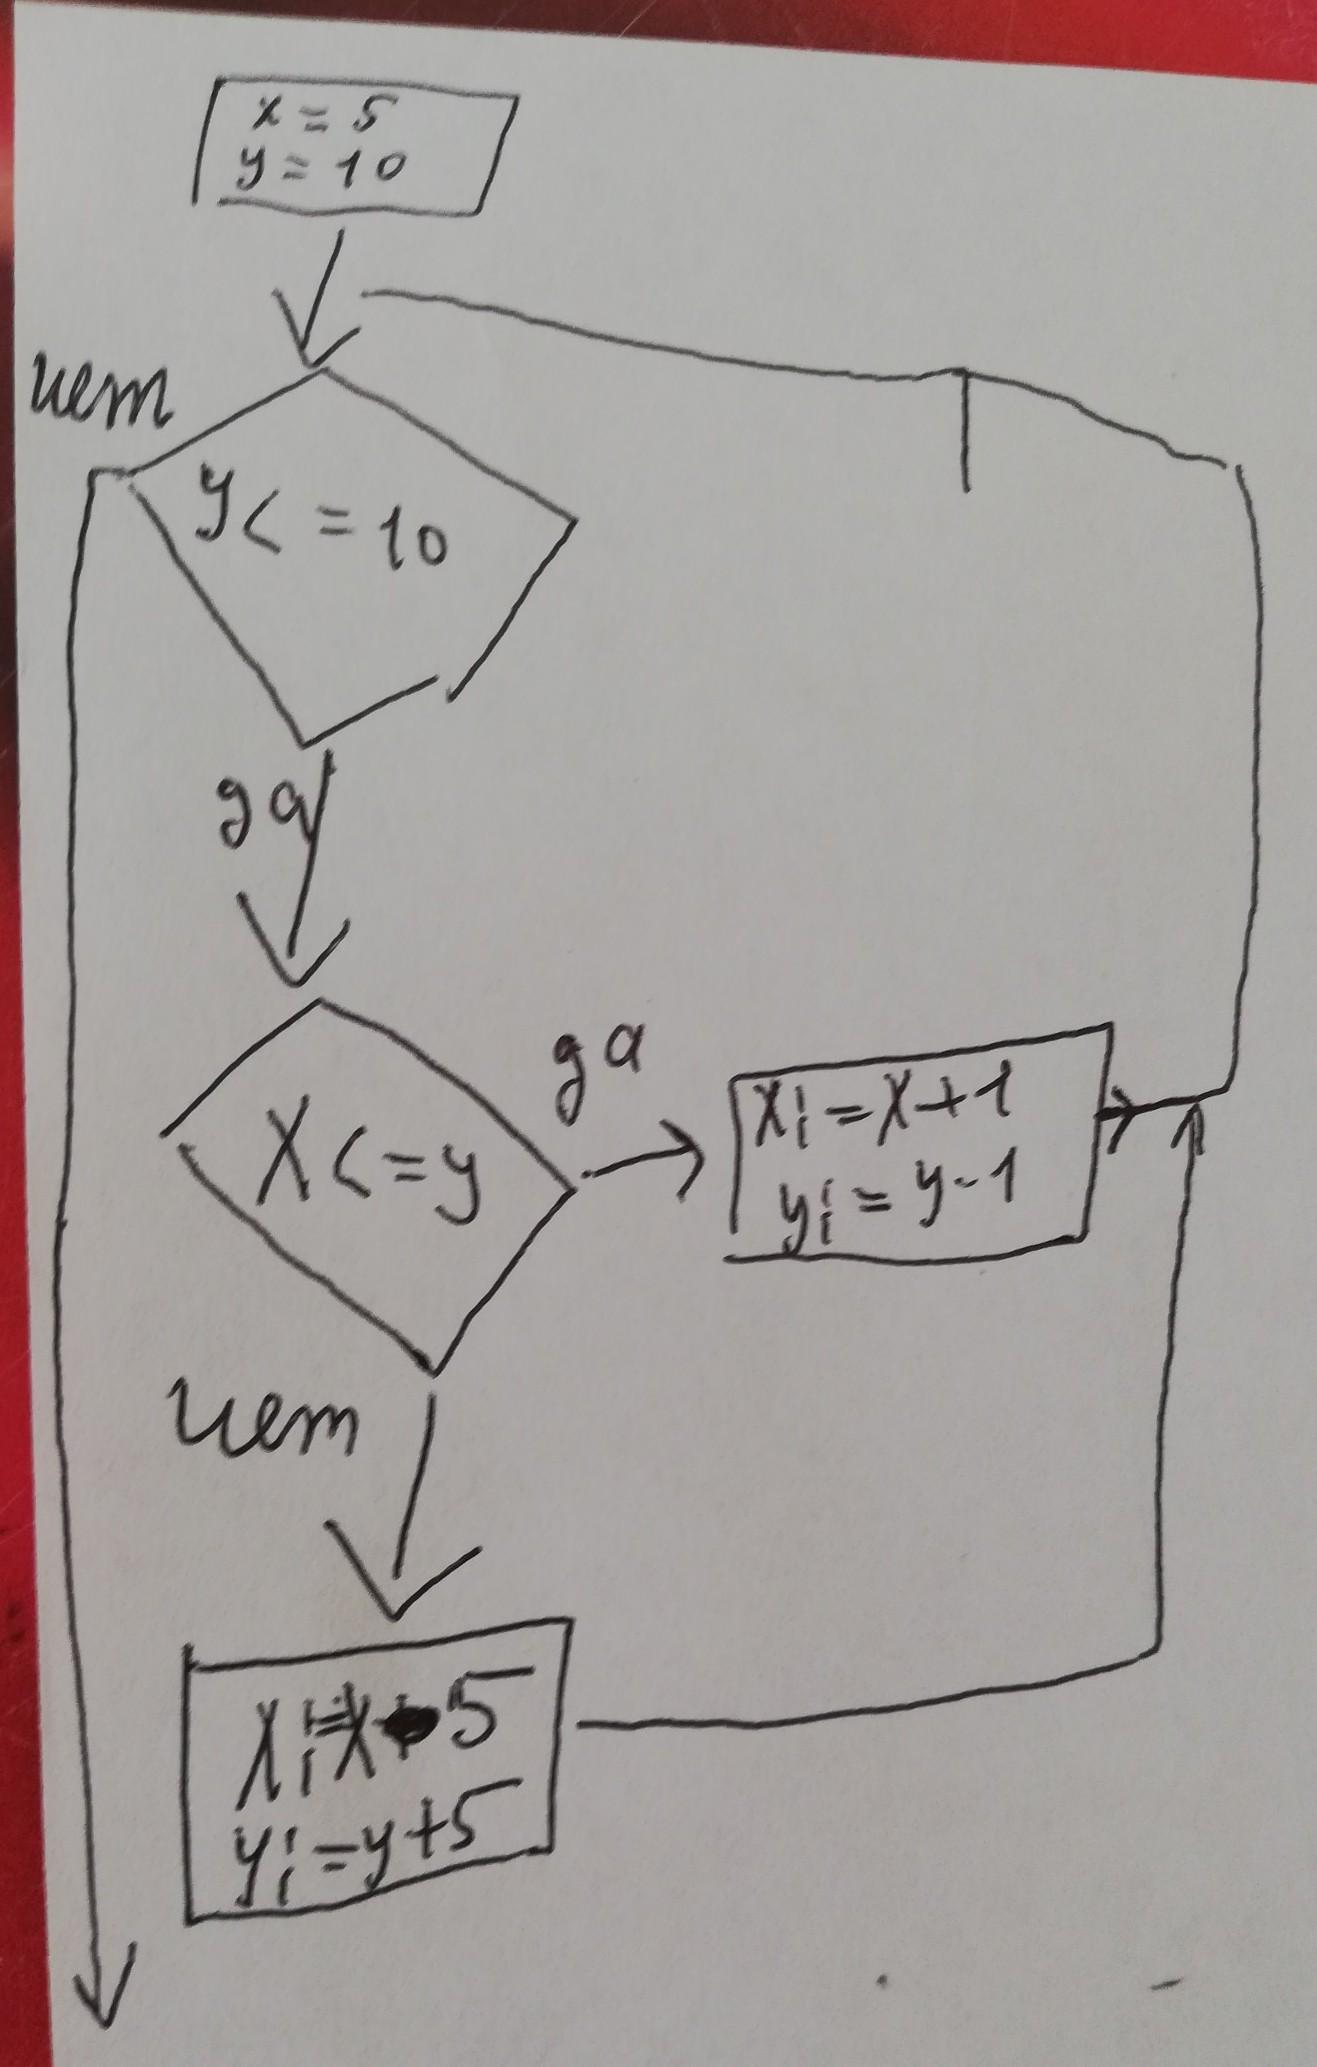 x = 5
y = 10
нет
y < = 10
да
x < = y
да
x := x + 1
y := y - 1
нет
x := x 5
y := y + 5